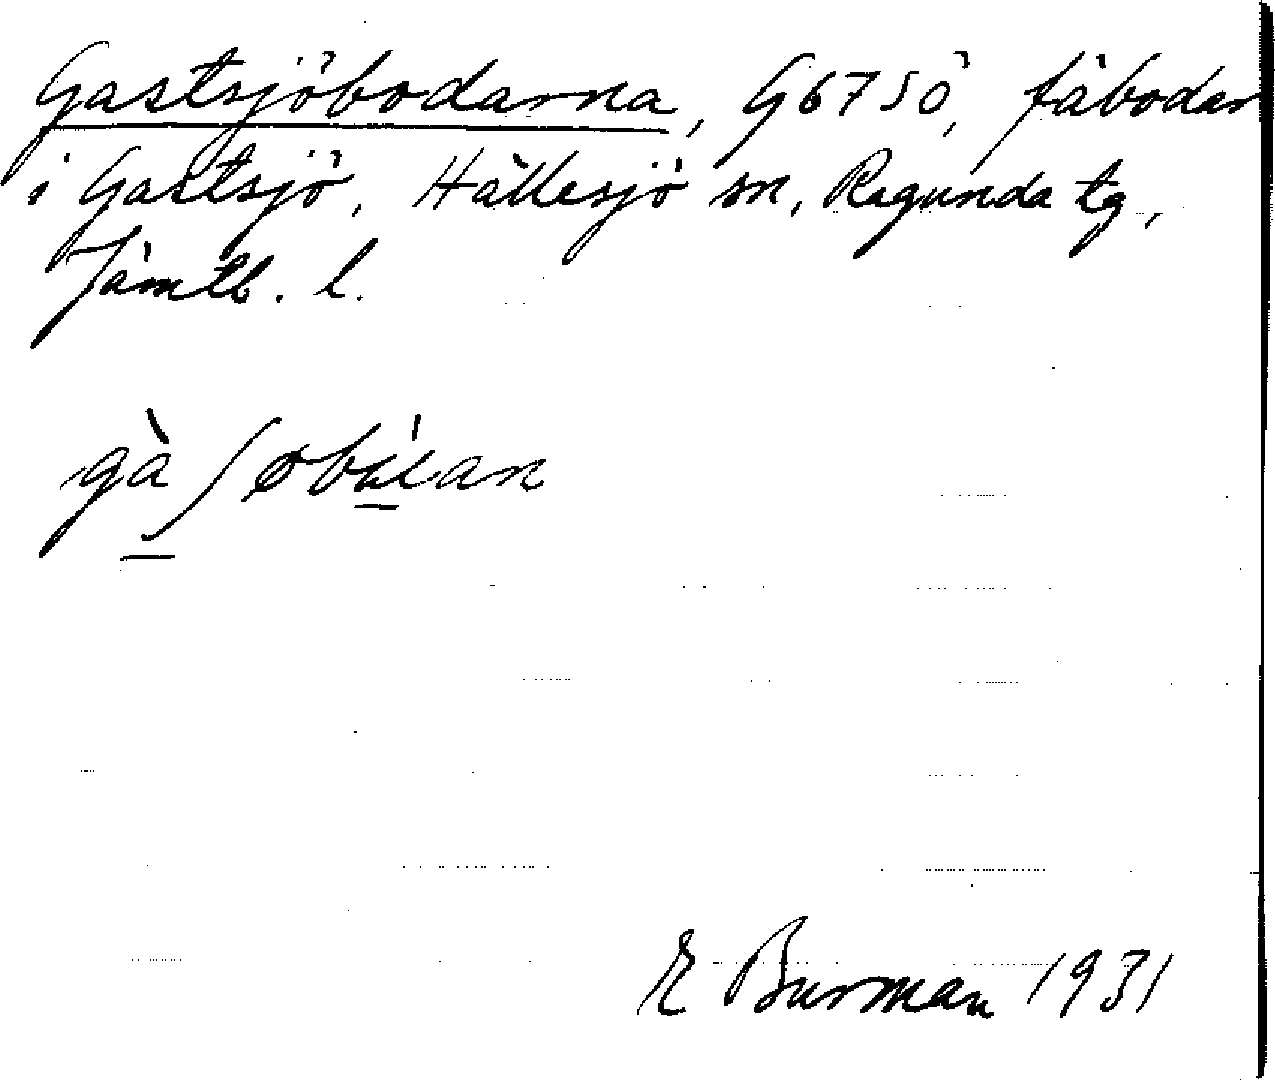 Gastsjöbodarna, G67SÖ, fäbodar
i Gastsjö, Hällesjö sn, Ragunda tg,
Jämtl. l.
E Burman 1931